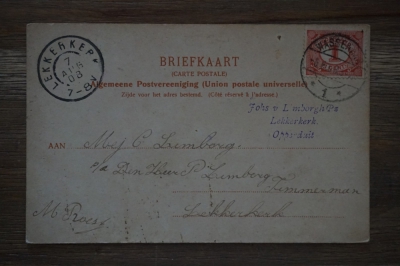 LEKKERKERK
7
AUG
08
7-8V
BRIEFKAART
(CARTE POSTALE)
Algemeene Postvereeniging (Union postale universelle)
Zijde voor het adres bestemd. (Côté réservé à l'adresse.)
1
Lekkerkerk
Opperduit
AAN
Mej C Lemborg
p/a Den Heer P. Lemborg
Timmerman
Lekkerkerk